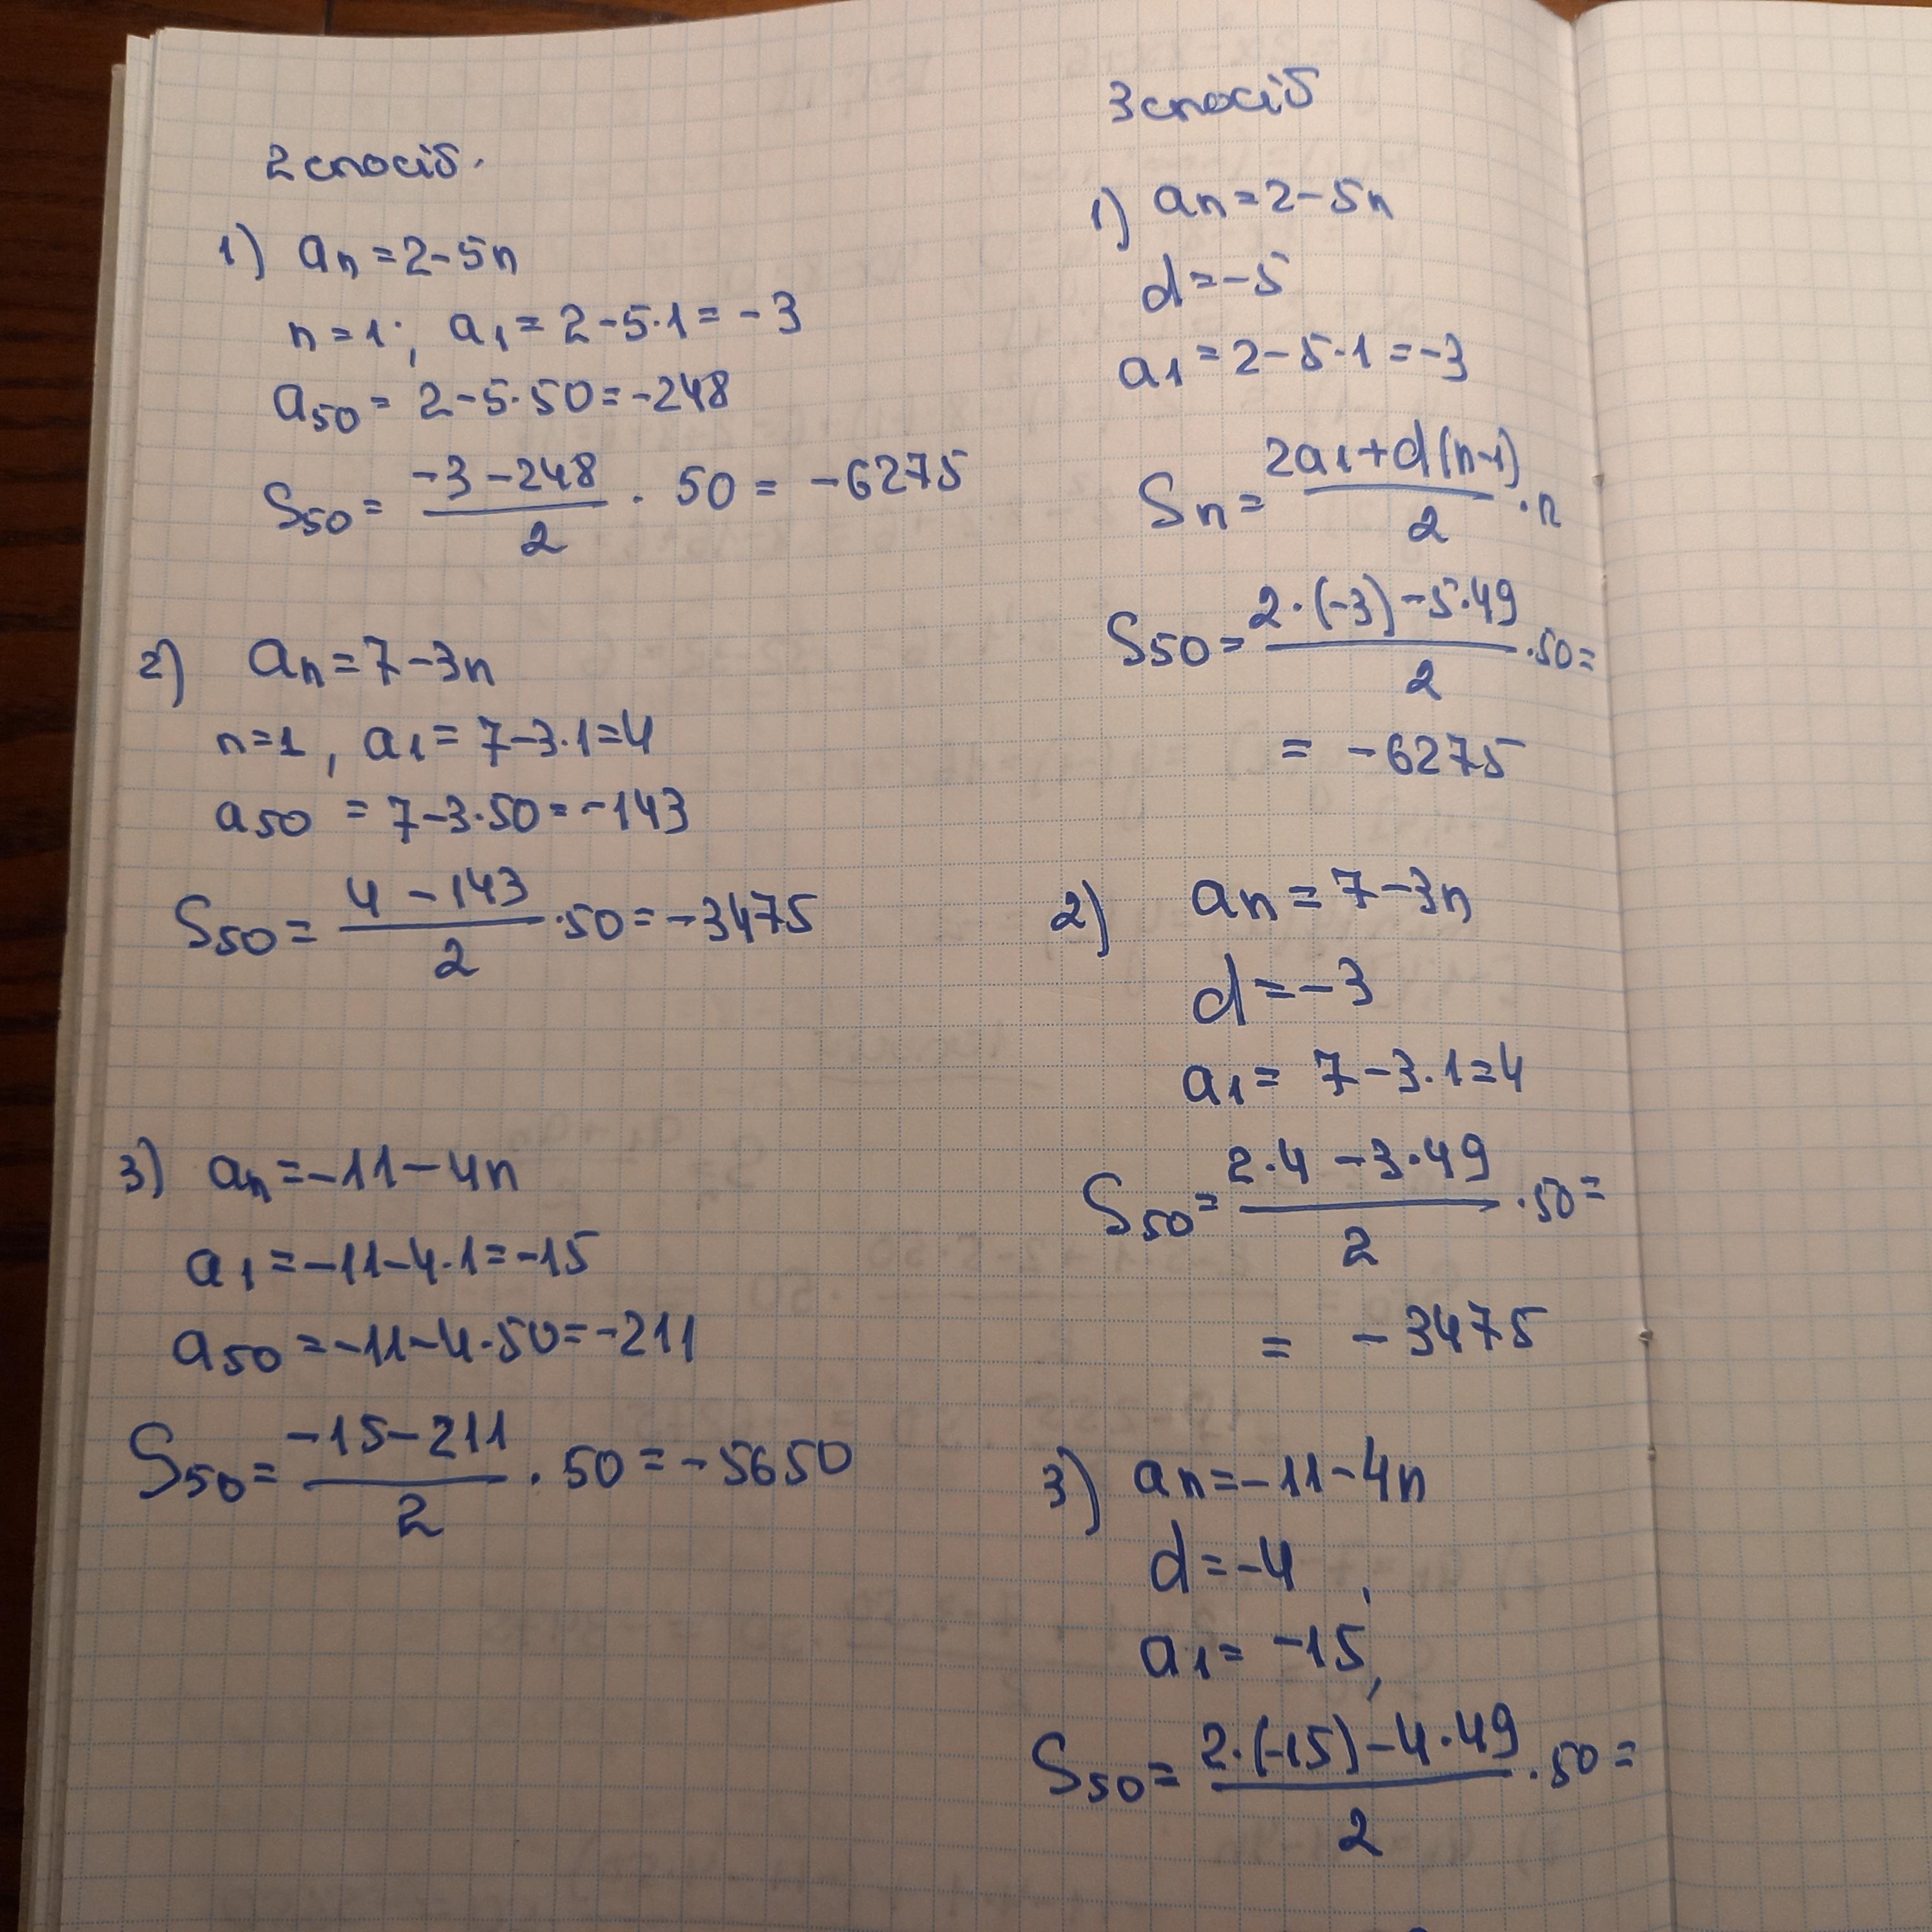 2 спосіб.
1) an = 2-5n
n = 1; a1 = 2-5·1 = -3
a50 = 2-5·50 = -248
S50 = (-3-248)/2 · 50 = -6275
2) an = 7-3n
n=1, a1 = 7-3·1=4
a50 = 7-3·50 = -143
S50 = (4-143)/2 ·50 = -3475
3) an = -11-4n
a1 = -11-4·1 = -15
a50 = -11-4·50 = -211
S50 = (-15-211)/2 · 50 = -5650
3 спосіб
1) an = 2-5n
d = -5
a1 = 2-5·1 = -3
Sn = (2a1+d(n-1))/2 ·n
S50 = (2·(-3)-5·49)/2 ·50 =
= -6275
2) an = 7-3n
d = -3
a1 = 7-3·1=4
S50 = (2·4-3·49)/2 ·50 =
= -3475
3) an = -11-4n
d = -4,
a1 = -15,
S50 = (2·(-15)-4·49)/2 ·50 =